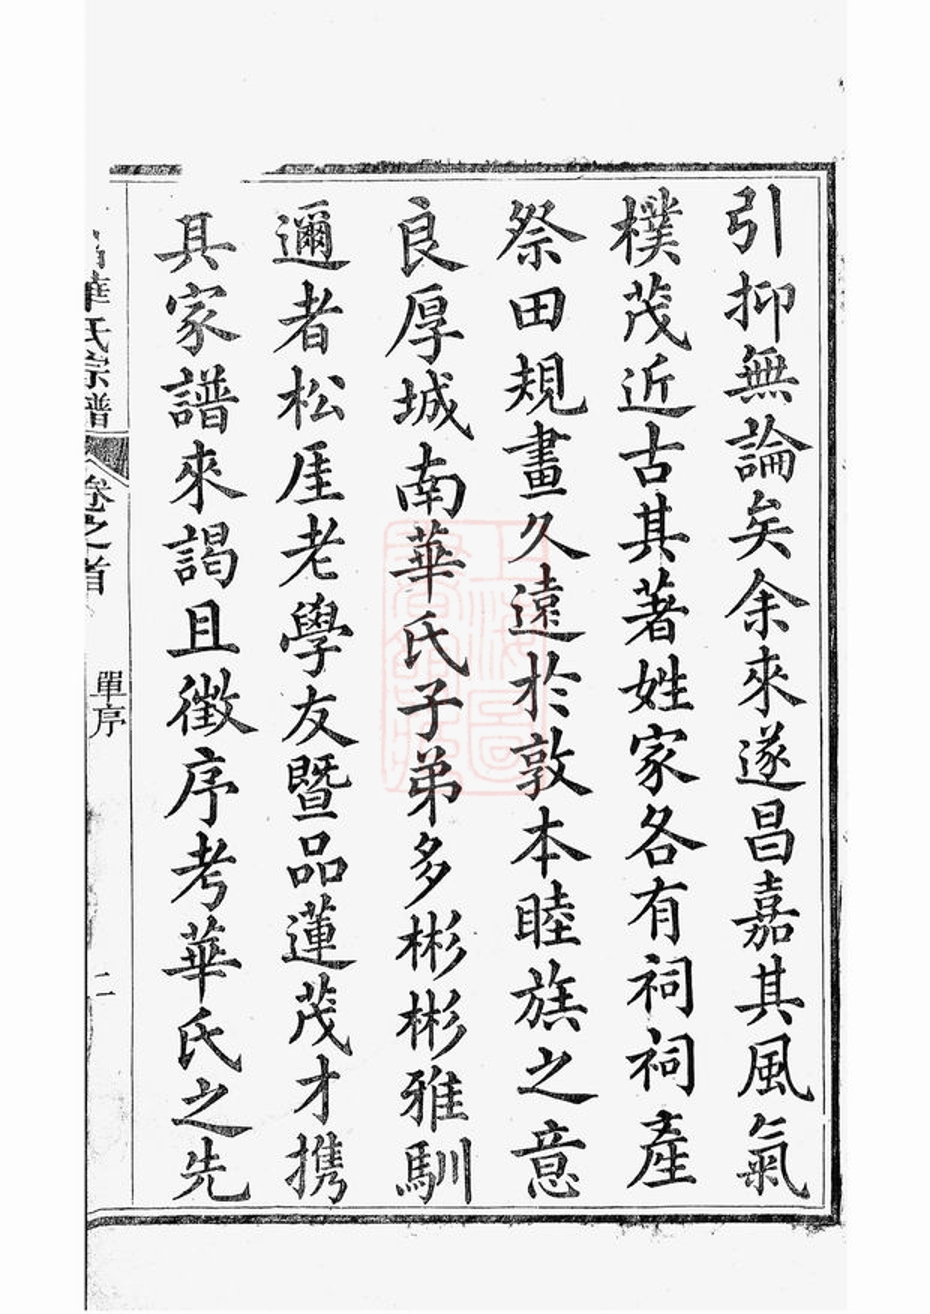 引抑無論矣余來遂昌嘉其風氣
樸茂近古其著姓家各有祠祠產
祭田規畫久遠於敦本睦族之意
良厚城南華氏子弟多彬彬雅馴
邇者松厓老學友暨品蓮茂才攜
具家譜來謁且徵序考華氏之先
昌華氏宗譜
卷之首
單序
二
上海圖書館藏